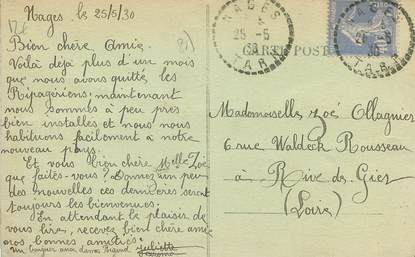 Nages, le 25/5/30
Bien chère Amie
Voilà déjà plus d'un mois
que nous avons quitté les
Ripagériens; maintenant
nous sommes à peu près
bien installés et nous nous
habituons facilement à notre
nouveau pays.
Et vous bien chère Melle Zoé
que faites-vous? Donnez un peu
des nouvelles ces dernières seront
toujours les bienvenues.
En attendant le plaisir de
vous lire, recevez bien chère amie
nos bonnes amitiés.
Un bonjour aux dames
Juliette
CARTE POSTALE
NAGES
25-5
30
TARN
NAGES
25-5
30
TARN
Mademoiselle Zoé Ollagnier
6 rue Waldeck Rousseau
à Rive de Gier
(Loire)